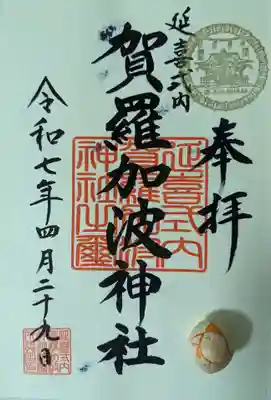 奉拝
延喜式内
賀羅加波神社
令和七年四月二十九日
延喜式内
賀羅加波
神社之璽